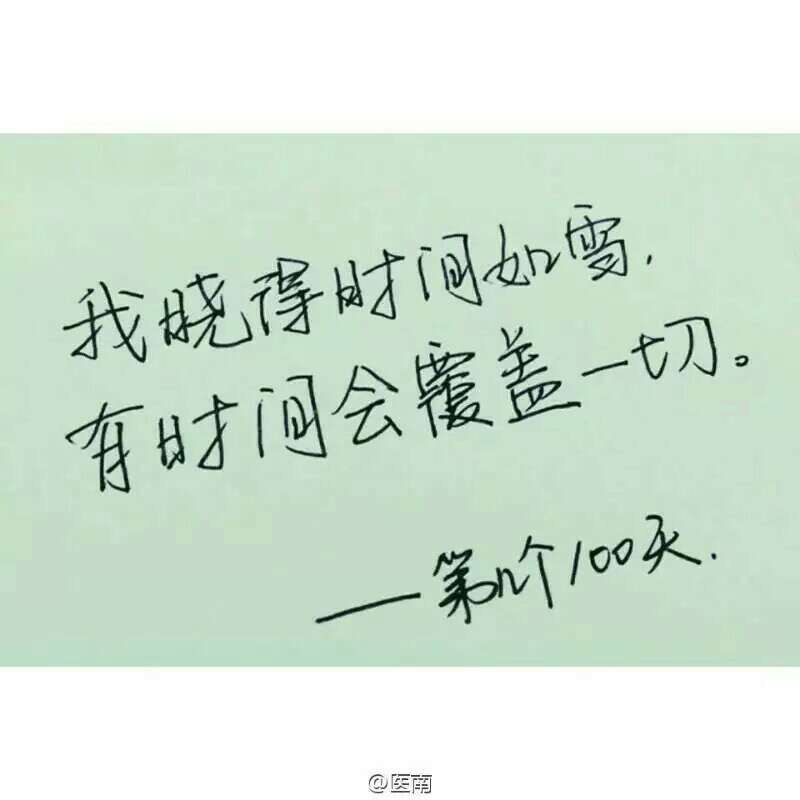 我晓得时间如雪.
有时间会覆盖一切。
——第几个100天.
@医南